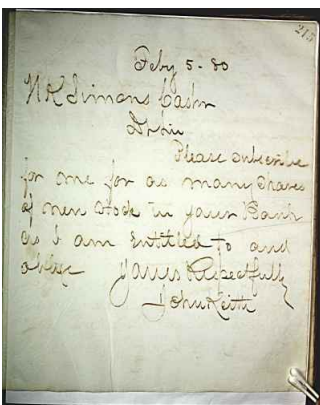 215
Feby 5 - 80
N R Simons Cashr
Dr Sir
Please subscribe
for me for as many Shares
of new Stock in your Bank
as I am Entitled to and
oblige Yours Respectfully
John Keith